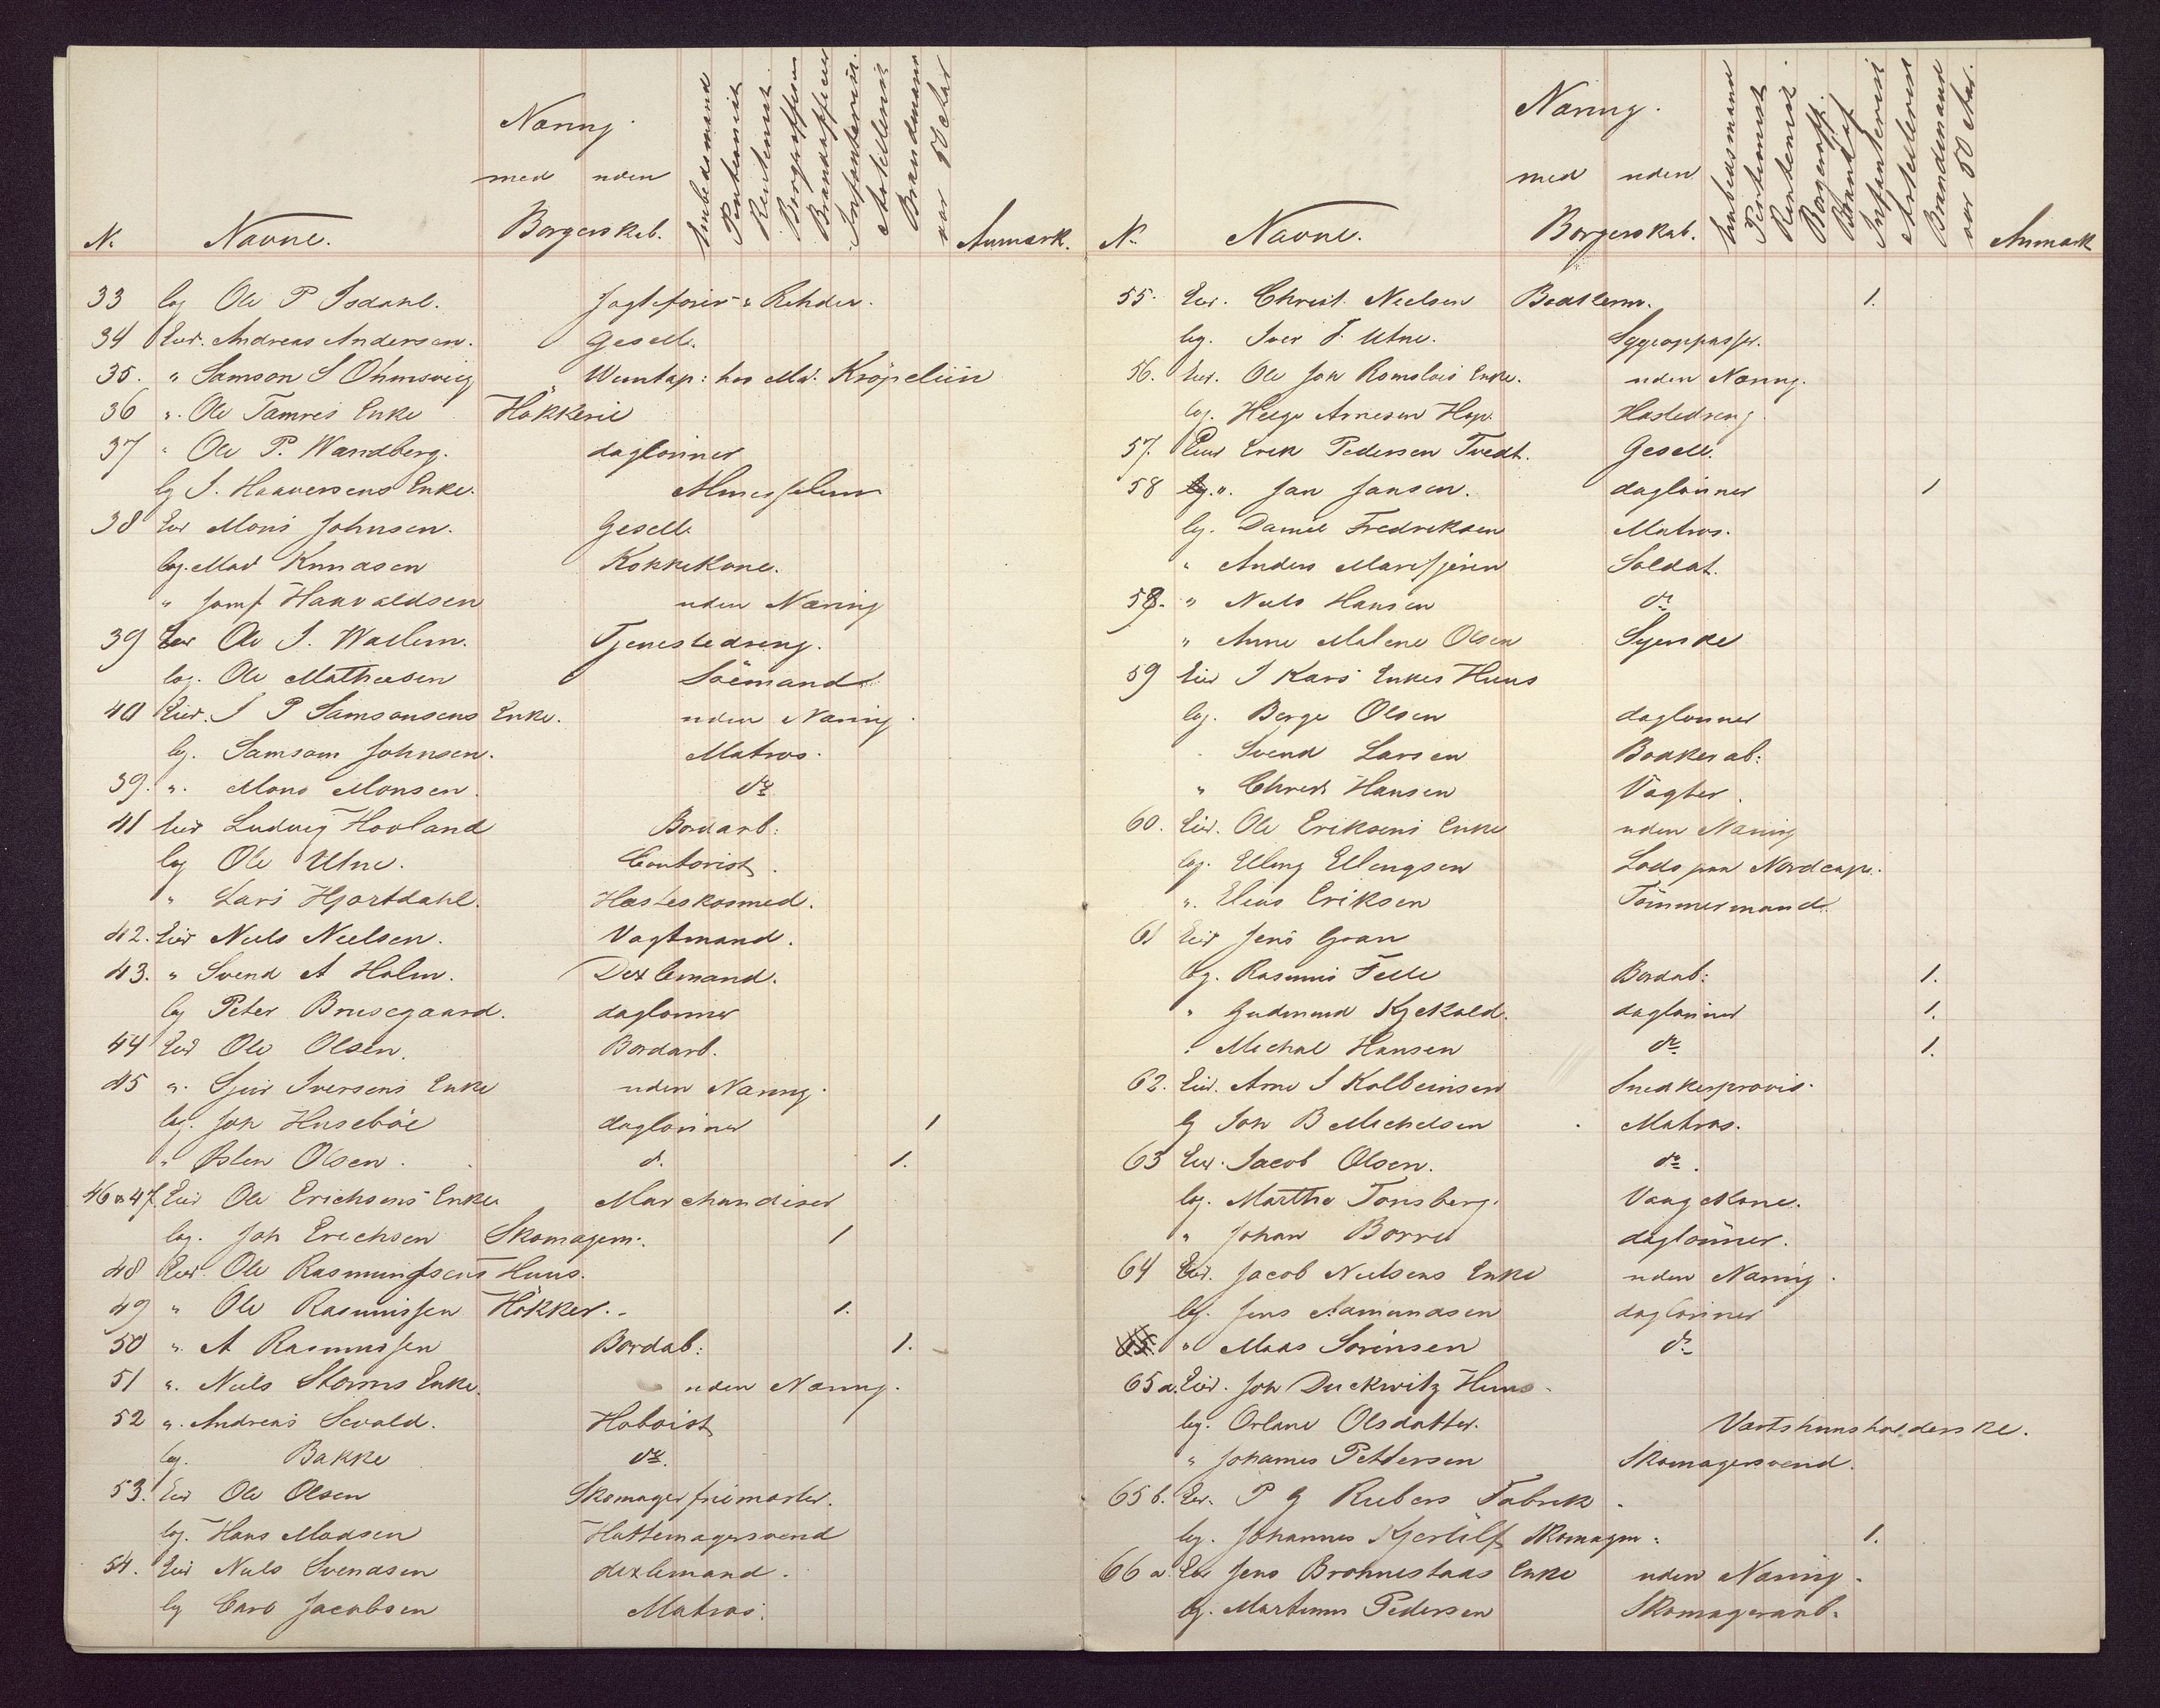 Næring.
med uden
N. Navne. Borgerskab. Embedsmand Pentionist Rentenist. Borgerofficeer Brandofficeer Infanterist. Artillerist Brandmand over 50 Aar Anmærk.
33 log Ole P Isdahl. Jagtefører " Rehder.
34 Eier. Andreas Andersen. Gesell.
35. " Samson S Ohmsvig Vuntap: hos Md. Krøpeliin
36 ". Ole Tamres Enke Høkkerie
37 " Ole P. Wandberg. daglønner
lg I. Haaversens Enke. Almisselem
38 Eier Mons Johnsen. Gesell.
log. Mad Knudsen Kokkekone.
" Jomf Haavaldsen uden Næring
39 Eier Ole I. Wallem. Tjenestedreng.
log. Ole Mathiesen Søemand
40 Eier. I P Samsonsens Enke. uden Næring.
lg. Samson Johnsen. Matros.
39. ". Mons Monsen. do
41 Eier Ludvig Hovland Bordarb:
log Ole Utne. Contorist.
" Lars Hjortdahl. Hesteskosmed.
42. Eier Niels Nielsen. Vagtmand.
43. " Svend A Holm. Dexlemand.
lg Peter Brusegaard. daglønner
44 Eier Ole Olsen. Bordarb.
45 ". Sjur Iversens Enke uden Næring.
log. Joh Husebøe daglønner 1
" Peter Olsen. d. 1.
46 & 47. Eier Ole Erichsens Enke Marchandiser
log. Joh Erichsen Skomagerm. 1
48 Eier. Ole Rasmussens Huus.
49 " Ole Rasmussen Høkker. 1.
50 ". A Rasmussen Bordab: 1.
51 ". Niels Storms Enke. uden Næring.
52 ". Andreas Sevald. Hoboist
log. Bakke do.
53. Eier Ole Olsen Skomager frimester.
log. Hans Madsen Hattemagersvend
54. Eier Niels Svendsen dexlemand.
lg Carl Jacobsen Matros.
Næring.
med uden
N. Navne. Borgerskab. Embedsmand Pentionist Rentenist. Borgeroff. Brandof Infanterist Artillerist Brandmand over 50 Aar. Anmærk
55. Eier. Christ. Nielsen Bødkerm. 1.
lg. Iver T. Utne. Sygeoppasser.
56. Eier. Ole Joh Romsloes Enke. uden Næring.
log. Helge Arnesen Hop. Hestedreng.
57. Eier Erik Pedersen Tvedt. Gesell.
58 ". Jan Jansen. daglønner 1
lg. Daniel Fredriksen Matros.
" Anders Soldat.
58. " Niels Hansen do
" Anne Malene Olsen Syerske
59 Eier I Kars Enkes Huus
lg. Børge Olsen daglønner
Svend Larsen Bødkerab:
" Christ Hansen Vægter.
60. Eier. Ole Eriksens Enke uden Næring
log. Elling Ellingsen Lods paa Nordcap.
". Elias Eriksen Tømmermand.
61 Eier Jens Gran
log. Rasmus Felle Bordab: 1.
" Gudmund Kjekold. daglønner 1.
" Michal Hansen do 1.
62. Eier. Arne I Kolbeinsen Snedkerprovis.
lg Joh B Michelsen Matros.
63 Eier. Jacob Olsen. do.
log. Marthe Tonsberg. Vaagekone.
" Johan Borre daglønner.
64 Eier. Jacob Nielsens Enke uden Næring.
lg. Jens Aamundsen daglønner
65. " Mads Sørensen do
65 a. Eier. Joh Duckwitz Huus.
lg. Orlane Olsdatter. Værtshuusholderske.
" Johannes Pettersen Skomagersvend.
65 b. Eier. P G Riebers Fabrik.
lg. Johannes Kjerlilf Skomagerm: 1.
66 a. Eier Jens Brohnestaas Enke uden Næring.
lg. Martinus Pedersen Skomagerarb.